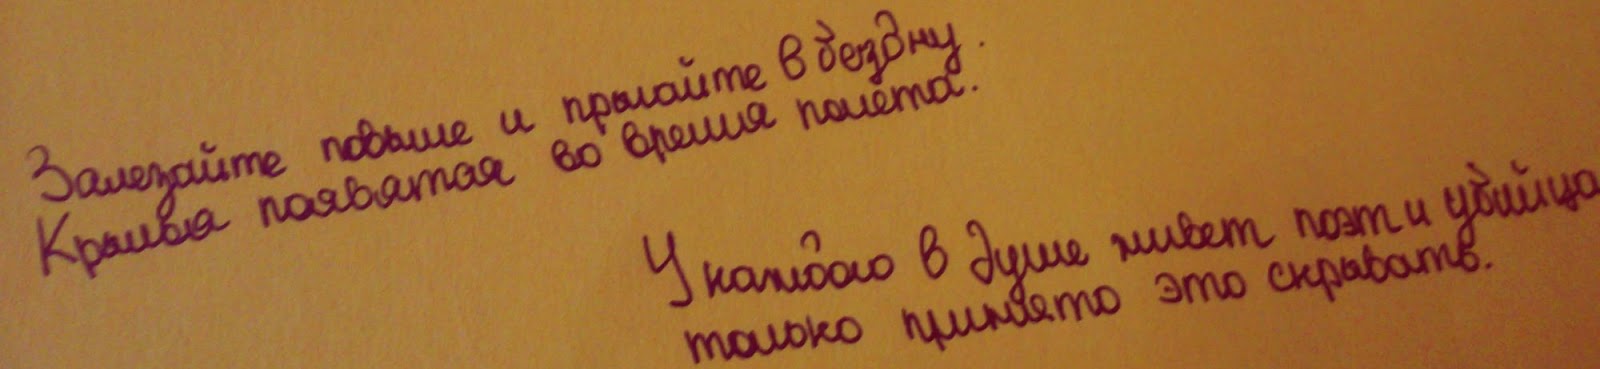 Залезайте повыше и прыгайте в бездну.
Крылья появятся во время полета.
У каждого в душе живет поэт и убийца
только принято это скрывать.